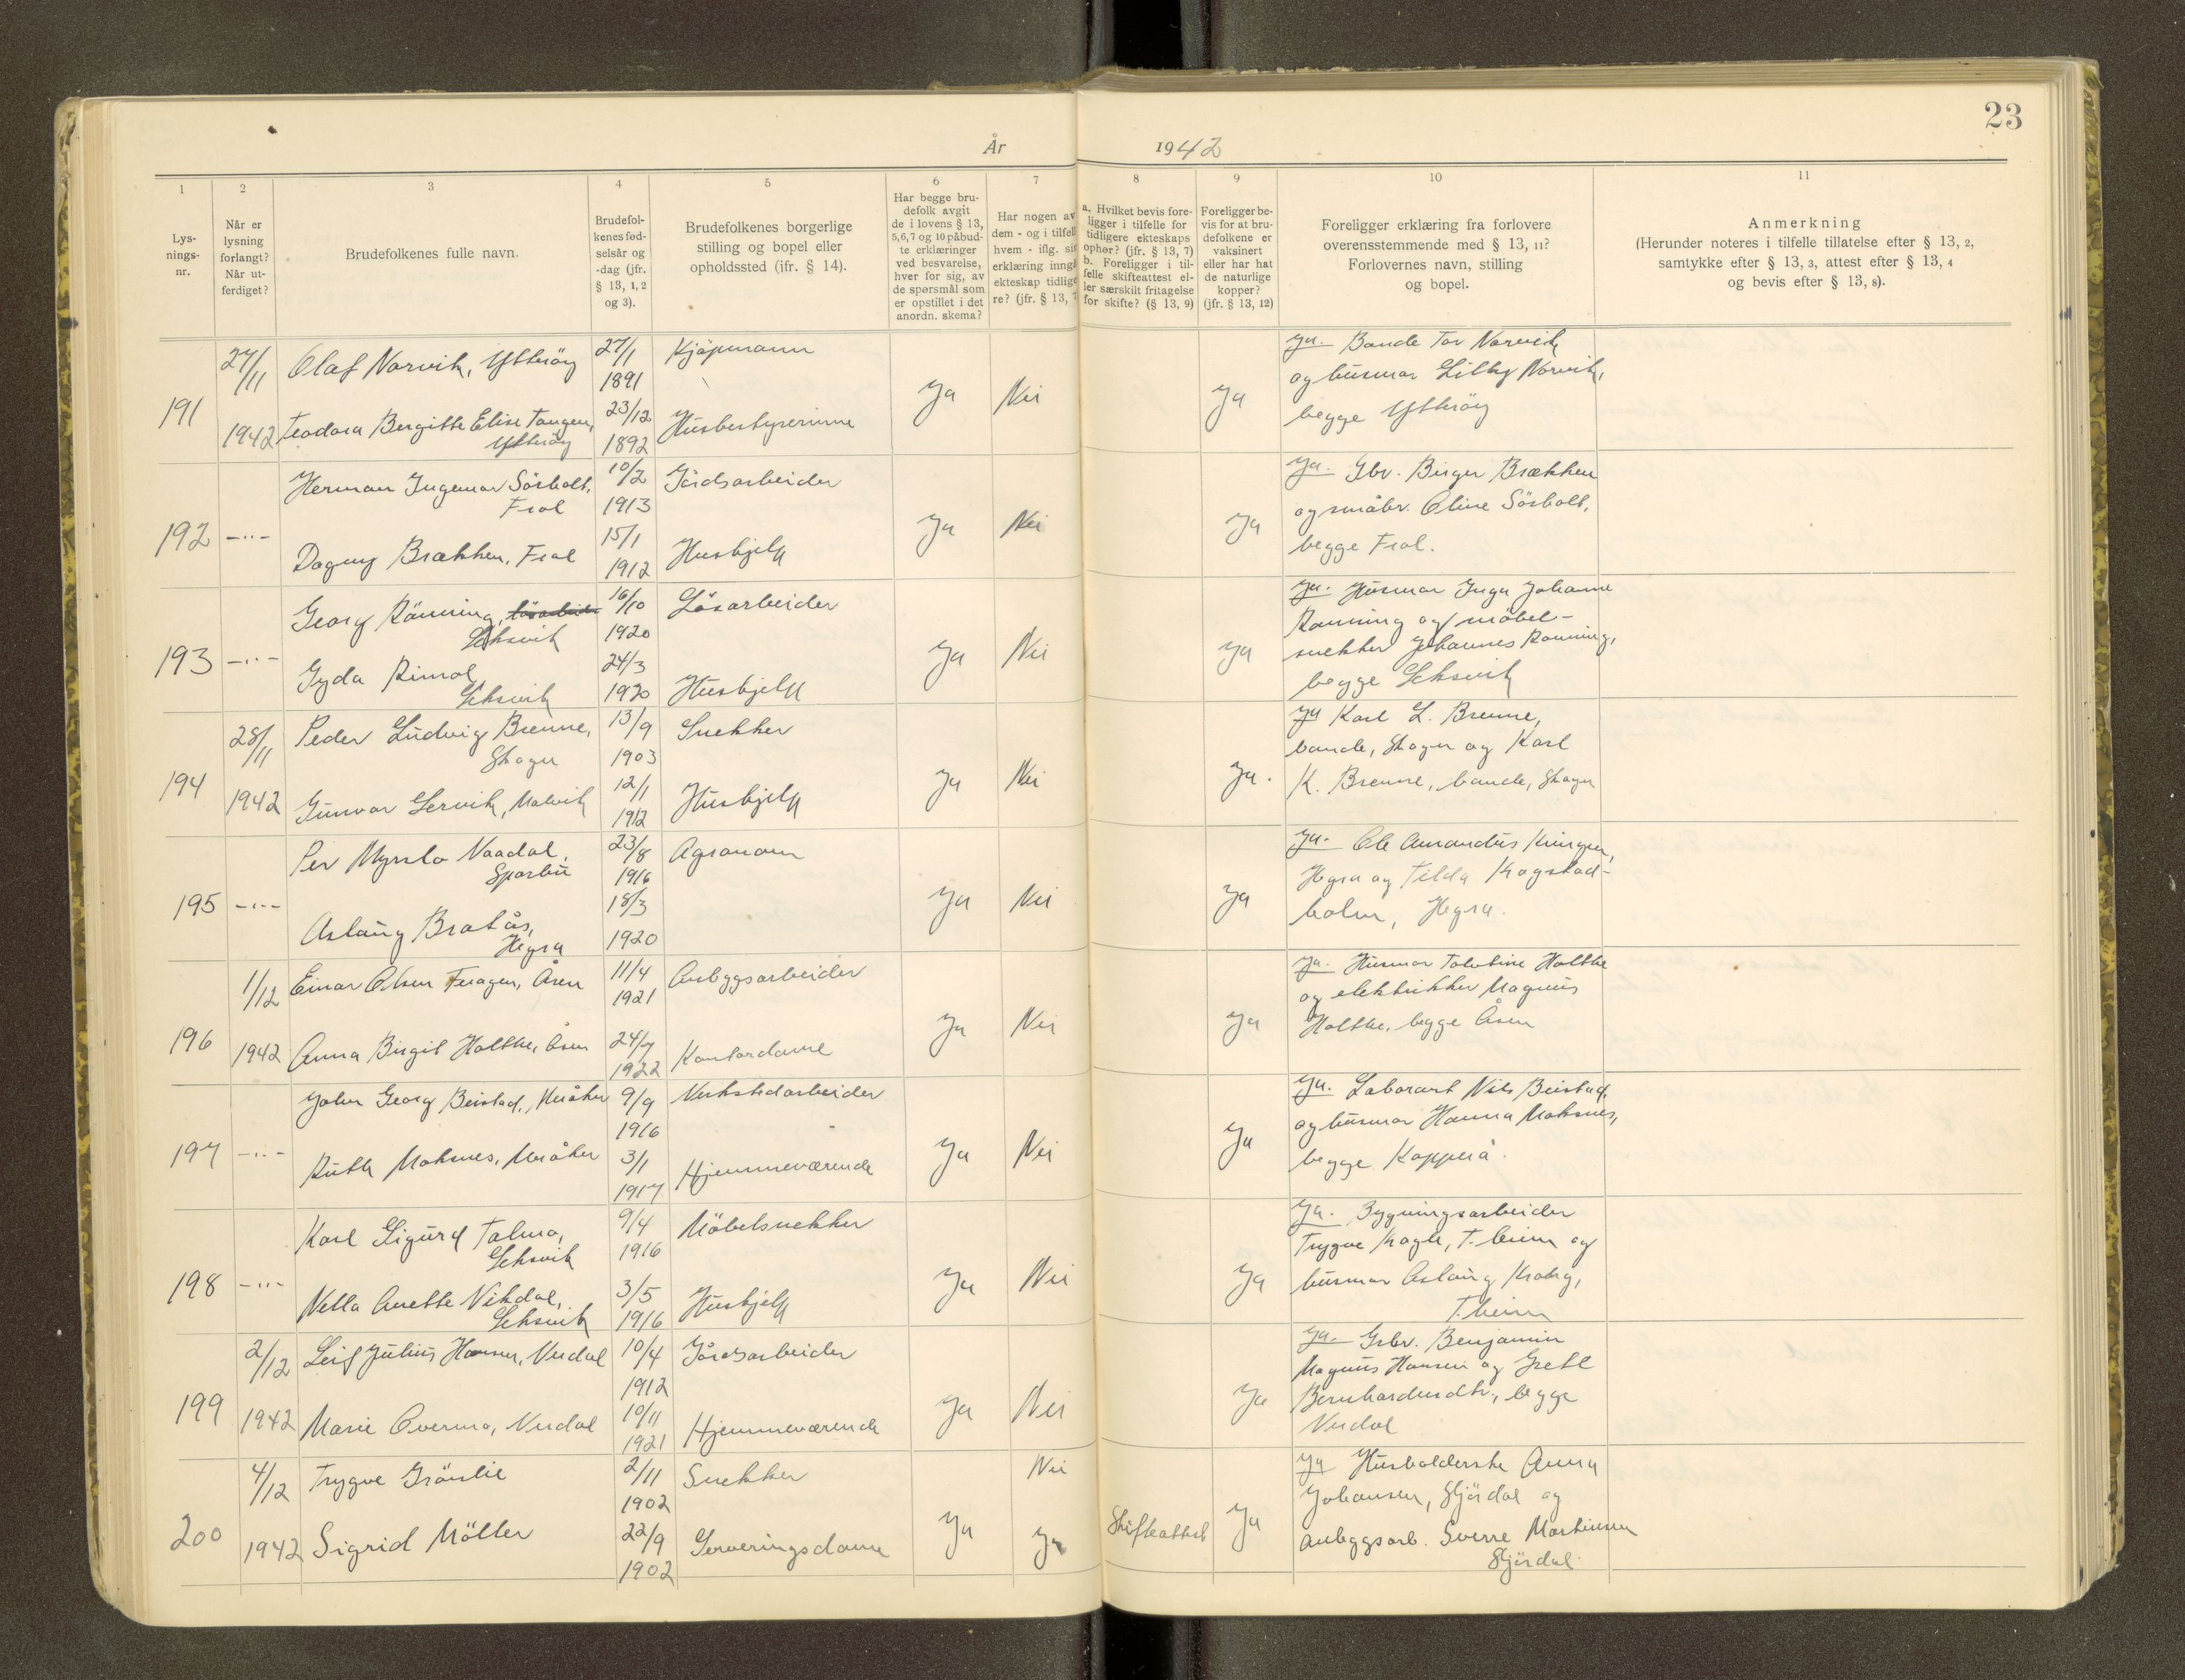 23
År 1942
1 2 3 4 5 6 7 8 9 10 11
Lys-
nings-
nr.
Når er
lysning
forlangt?
Når ut-
ferdiget?
Brudefolkenes fulle navn.
Brudefol-
kenes fød-
selsår og
-dag (jfr.
§ 13, 1, 2
og 3).
Brudefolkenes borgerlige
stilling og bopel eller
opholdssted (ifr. § 14).
Har begge bru-
defolk avgit
de i lovens § 13,
5, 6, 7 og 10 påbud-
te erklæringer
ved besvarelse,
hver for sig, av
de spørsmål som
er opstillet i det
anordn. skema?
Har nogen av
dem - og i tilfell
hvem - iflg. sin
erklæring inngå
ekteskap tidlige
re? (jfr. § 13, 7
a. Hvilket bevis fore-
ligger i tilfelle for
tidligere ekteskaps
ophør? (jfr. § 13, 7)
b. Foreligger i til-
felle skifteattest el-
ler særskilt fritagelse
for skifte? (§ 13, 9)
Foreligger be-
vis for at bru-
defolkene er
vaksinert
eller har hat
de naturlige
kopper?
(jfr. § 13, 12)
Foreligger erklæring fra forlovere
overensstemmende med § 13, 11?
Forlovernes navn, stilling
og bopel.
Anmerkning
(Herunder noteres i tilfelle tillatelse efter § 13, 2,
samtykke efter § 13, 3, attest efter § 13, 4
og bevis efter § 13, 8).
191
27/11
1942
Olaf Norvik, Ytterøy
27/1
1891
Kjøpmann
Teodora Bergitte Elise Tangen,
Ytterøy
23/12
1892
Husbestyrerinne
Ja
Nei
Ja
Ja. Bonde Tor Norvik
og husmor Lilly Norvik,
begge Ytterøy
192
-"-
Herman Ingemar Sørholt,
Frol
10/2
1913
Jordsarbeider
Dagny Brækken, Frol
15/1
1912
Hushjelp
Ja
Nei
Ja
Ja. Gbr. Birger Brækken
og småbr. Oline Sørholt,
begge Frol.
193
-"-
Georg Rönning,
Leksvik
16/10
1920
Løsarbeider
Gyda Rimol,
Leksvik
24/3
1920
Hushjelp
Ja
Nei
Ja
Ja. Husmor Inga Johanne
Rønning og møbel-
snekker Johannes Rønning,
begge Leksvik
194
28/11
1942
Peder Ludvig Brenne,
Skogn
13/9
1903
Snekker
Gunvor Lervik, Malvik
12/1
1912
Hushjelp
Ja
Nei
Ja.
Ja Karl L. Brenne,
bonde, Skogn og Karl
K. Brenne, bonde, Skogn
195
-"-
Per Naadal,
Sparbu
23/8
1916
Agronom
Aslaug Bratås,
Hegra
18/3
1920
Ja
Nei
Ja
Ja. Ole Amandus
Hegra og Tilda Krogstad-
holm, Hegra.
196
1/12
1942
Einar Olsen Feragen, Åsen
11/4
1921
Anleggsarbeider
Anna Birgit Holthe, Åsen
24/7
1922
Kontordame
Ja
Nei
Ja
Ja. Husmor Holthe
og elektrikker Magnus
Holthe, begge Åsen
197
-"-
John Georg Beistad, Meråker
9/9
1916
Verkstedarbeider
Ruth Moksnes, Meråker
3/1
1917
Hjemmeværende
Ja
Nei
Ja
Ja. Laborant Nils Beistad,
og husmor Hanna Moksnes,
begge Kopperå.
198
-"-
Karl Sigurd Talmo,
Leksvik
9/4
1916
Møbelsnekker
Nella Anette Vikdal,
Leksvik
3/5
1916
Hushjelp
Ja
Nei
Ja
Ja. Bygningsarbeider
Trygve Krogh, T.heim og
husmor Aslaug Krohg,
T.heim
199
2/12
1942
Leif Julius Hansen, Verdal
10/4
1912
Jordsarbeider
Marie Overmo, Verdal
10/11
1921
Hjemmeværende
Ja
Nei
Ja
Ja. Grbr. Benjamin
Magnus Hansen og Grete
Bernhardusdtr., begge
Verdal
200
4/12
1942
Trygve Grönlie
2/11
1902
Snekker
Nei
Sigrid Möller
22/9
1902
Serveringsdame
Ja
Ja
Skifteattest
Ja
Ja Husholderske Anna
Johansen, Stjørdal og
anleggsarb. Sverre Martinsen
Stjørdal.